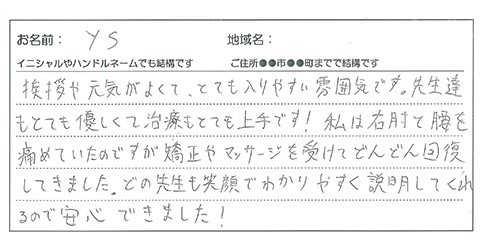 お名前： YS 地域名：
イニシャルやハンドルネームでも結構です ご住所●●市●●町までで結構です
挨拶や元気がよくて、とても入りやすい雰囲気です。先生達
もとても優しくて治療もとても上手です！私は右肘と腰を
痛めていたのですが矯正やマッサージを受けてどんどん回復
してきました。どの先生も笑顔でわかりやすく説明してくれ
るので安心できました！